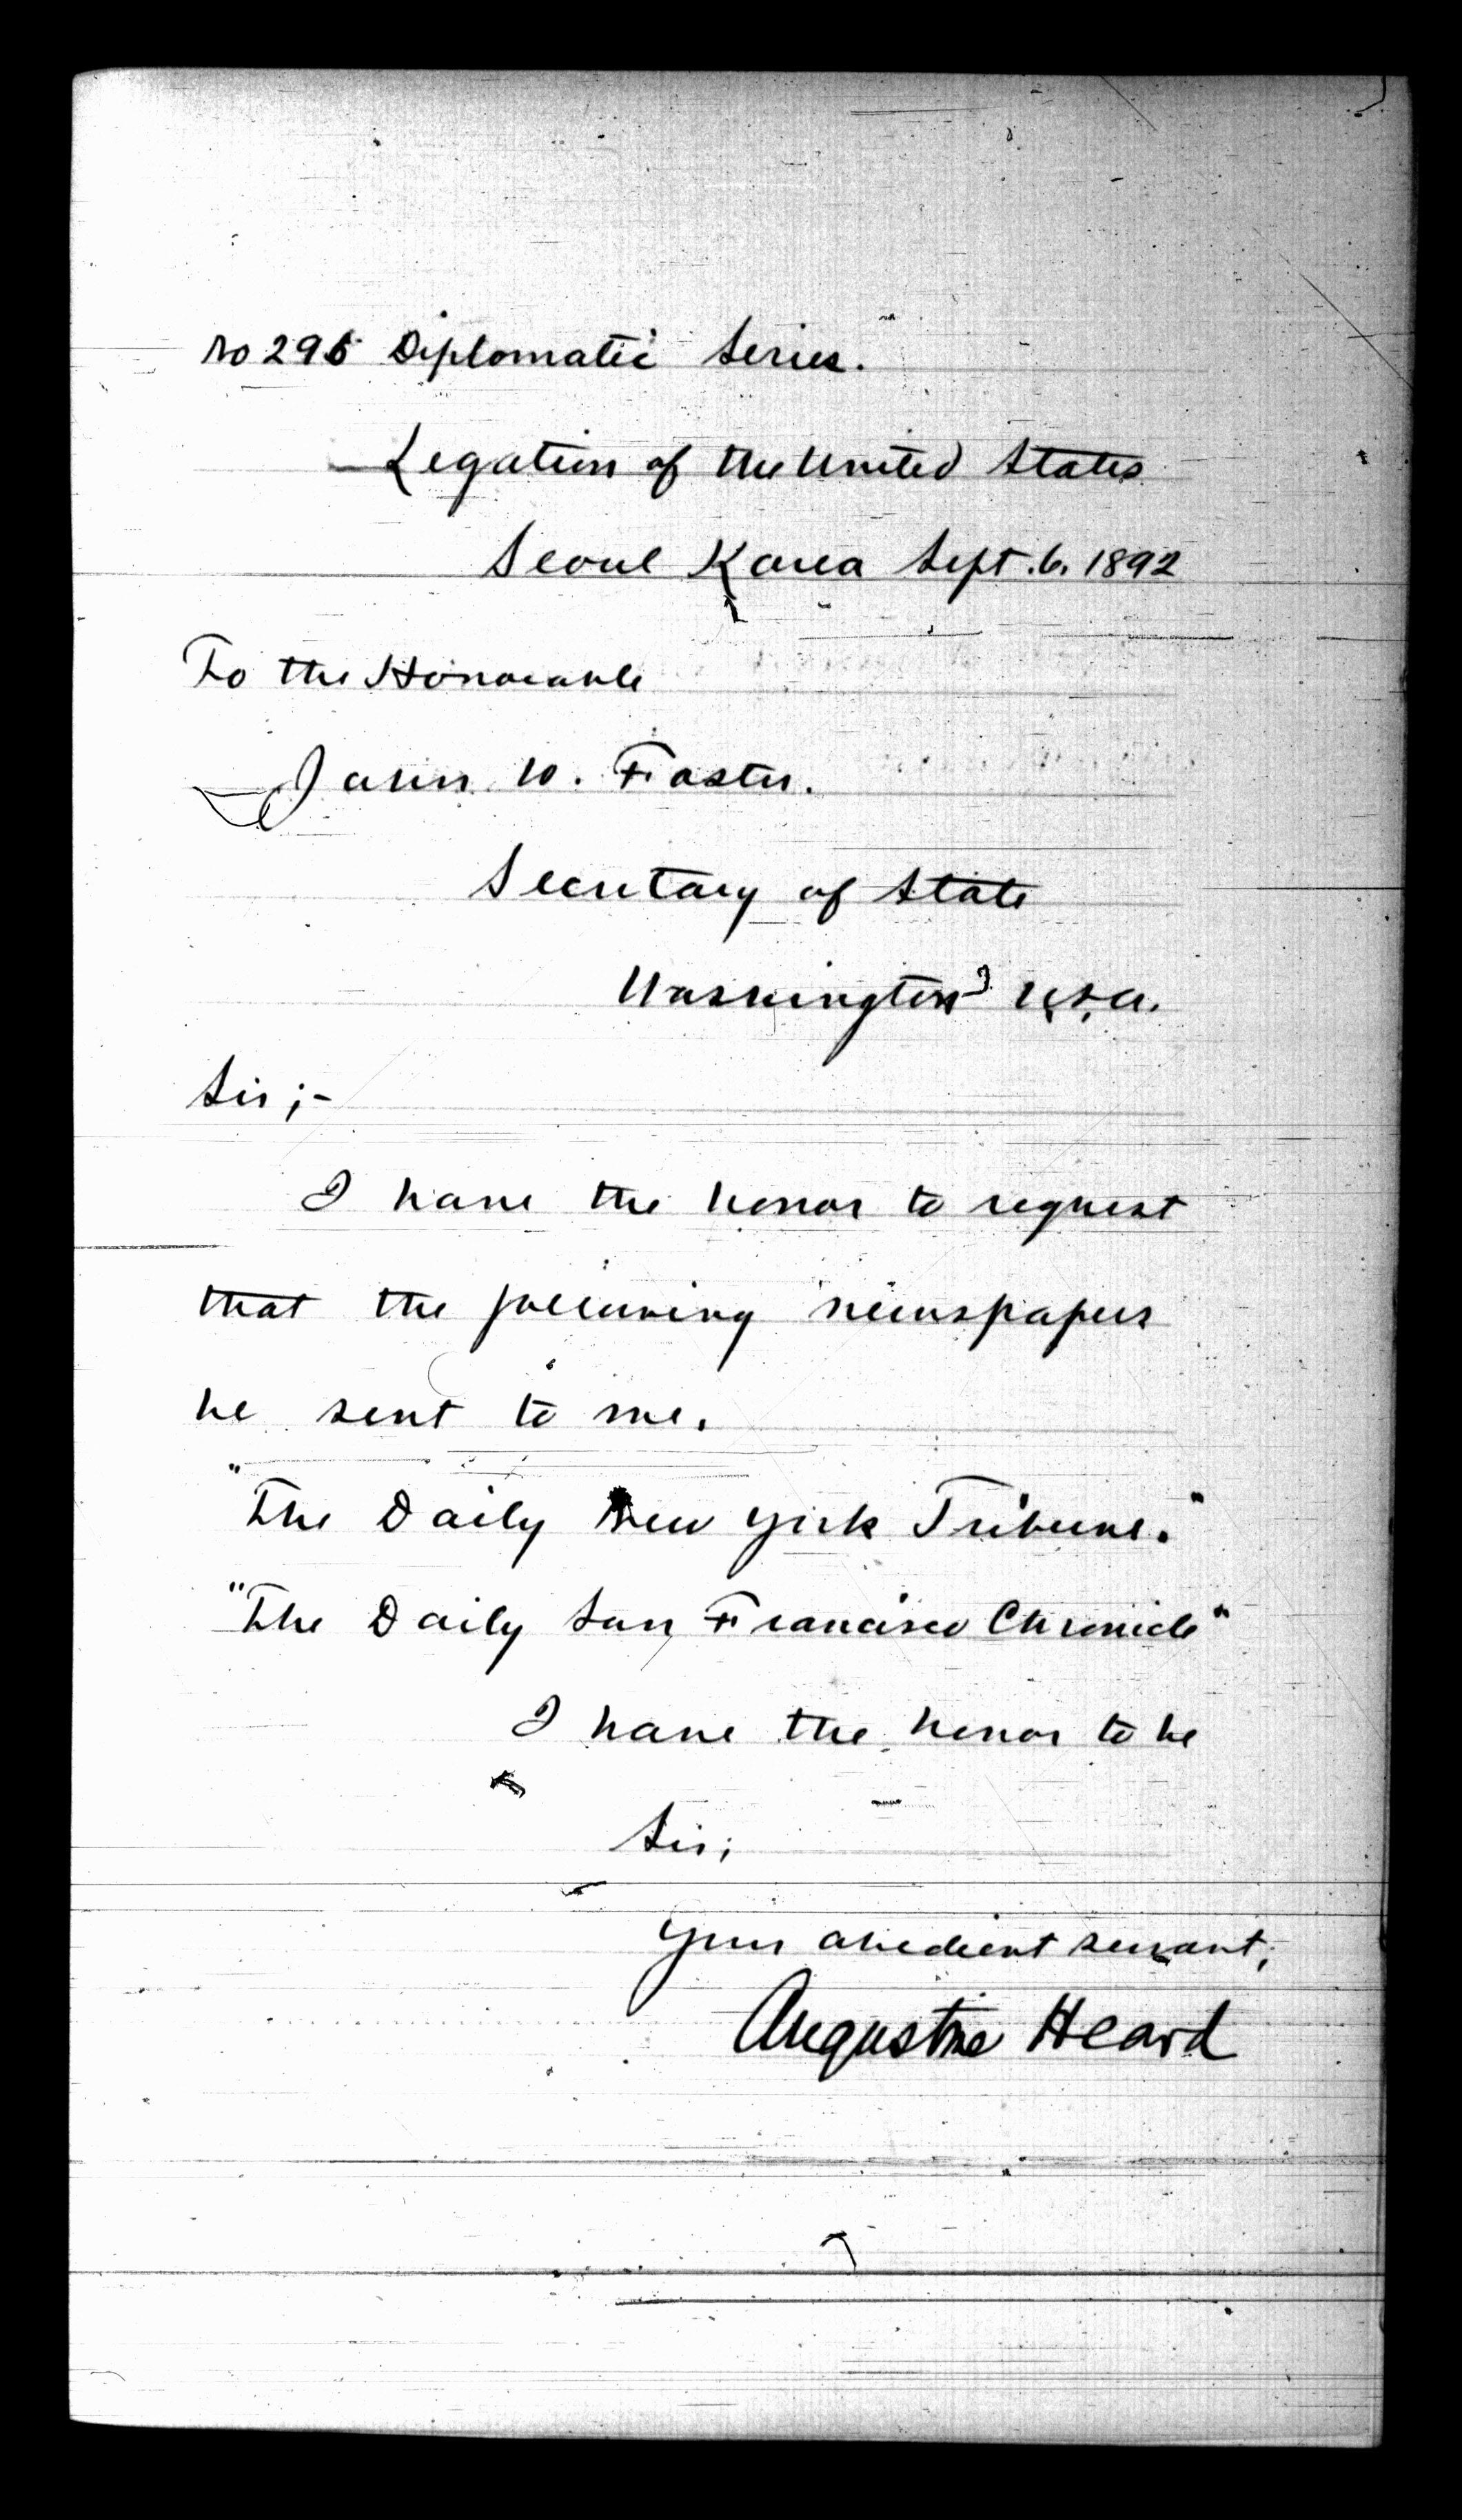 No 295 Diplomatic Series.
Legation of the United States
Seoul Korea Sept. 6. 1892
To the Honorable
John W. Foster.
Secretary of State
Washington U.S.A.
Sir;-
I have the honor to request
that the following newspapers
be sent to me.
"The Daily New York Tribune."
"The Daily San Francisco Chronicle"
I have the honor to be
Sir;
Your obedient servant,
Augustine Heard